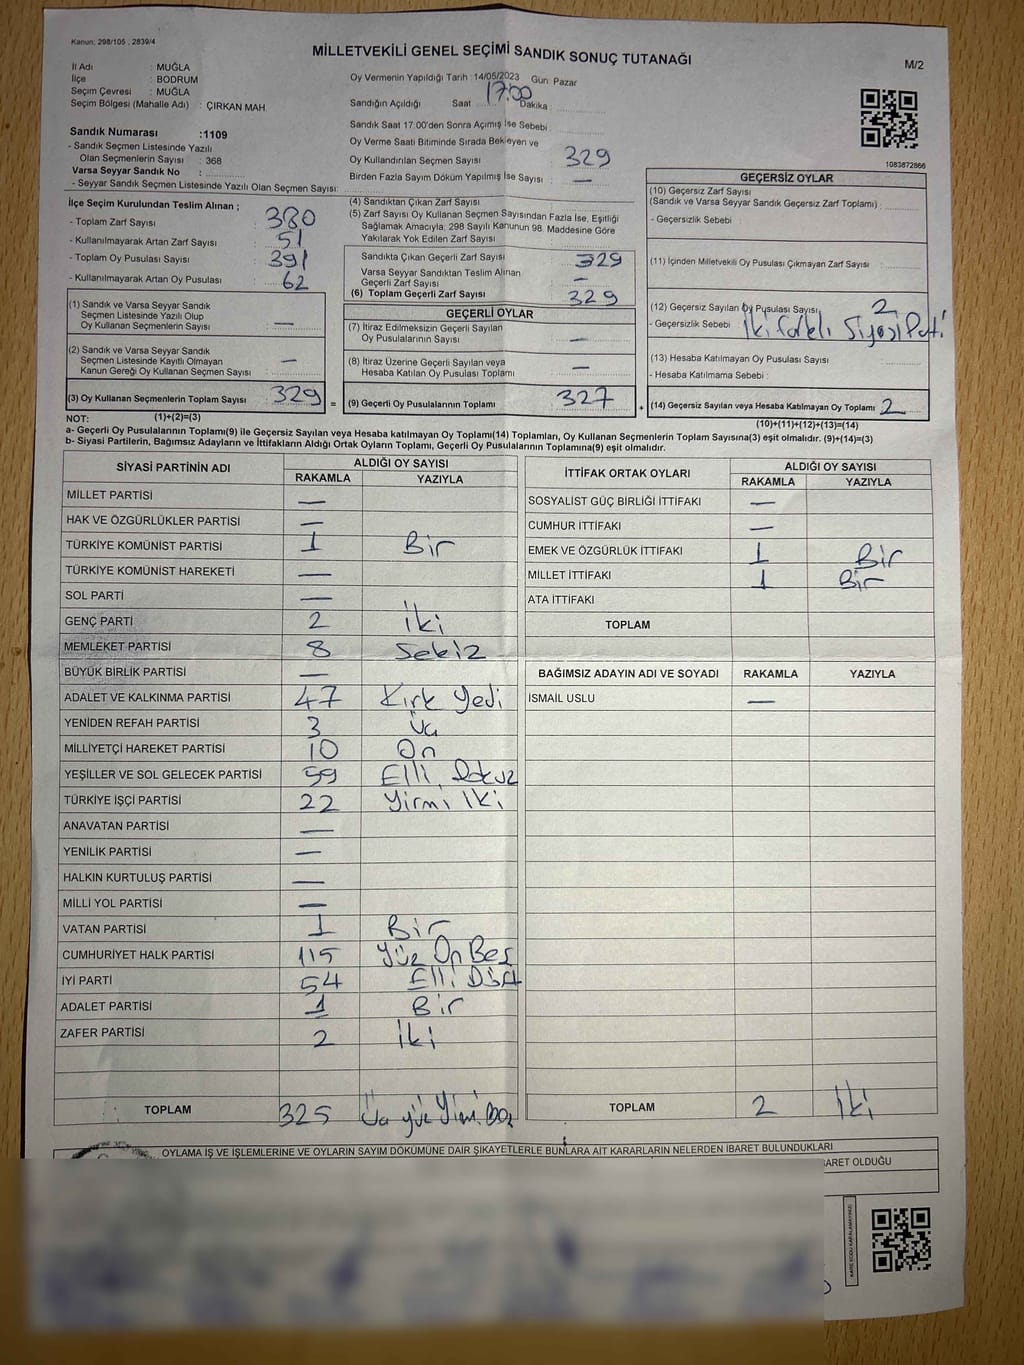 Kanun: 298/105 , 2839/4
MİLLETVEKİLİ GENEL SEÇİMİ SANDIK SONUÇ TUTANAĞI
M/2
İl Adı : MUĞLA
İlçe : BODRUM
Seçim Çevresi : MUĞLA
Seçim Bölgesi (Mahalle Adı) : ÇIRKAN MAH
Sandık Numarası :1109
- Sandık Seçmen Listesinde Yazılı
Olan Seçmenlerin Sayısı : 368
Varsa Seyyar Sandık No :
- Seyyar Sandık Seçmen Listesinde Yazılı Olan Seçmen Sayısı:
Oy Vermenin Yapıldığı Tarih :14/05/2023 Gün Pazar
Sandığın Açıldığı Saat 17:00 Dakika :
Sandık Saat 17:00'den Sonra Açımış İse Sebebi :
Oy Verme Saati Bitiminde Sırada Bekleyen ve
Oy Kullandırılan Seçmen Sayısı : 329
Birden Fazla Sayım Döküm Yapılmış İse Sayısı : —
1083872866
İlçe Seçim Kurulundan Teslim Alınan ;
- Toplam Zarf Sayısı : 380
- Kullanılmayarak Artan Zarf Sayısı : 51
- Toplam Oy Pusulası Sayısı : 391
- Kullanılmayarak Artan Oy Pusulası : 62
(1) Sandık ve Varsa Seyyar Sandık
Seçmen Listesinde Yazılı Olup
Oy Kullanan Seçmenlerin Sayısı : —
(2) Sandık ve Varsa Seyyar Sandık
Seçmen Listesinde Kayıtlı Olmayan
Kanun Gereği Oy Kullanan Seçmen Sayısı : —
(3) Oy Kullanan Seçmenlerin Toplam Sayısı : 329 =
(4) Sandıktan Çıkan Zarf Sayısı :
(5) Zarf Sayısı Oy Kullanan Seçmen Sayısından Fazla İse, Eşitliği
Sağlamak Amacıyla; 298 Sayılı Kanunun 98. Maddesine Göre
Yakılarak Yok Edilen Zarf Sayısı :
Sandıkta Çıkan Geçerli Zarf Sayısı : 329
Varsa Seyyar Sandıktan Teslim Alınan
Geçerli Zarf Sayısı : —
(6) Toplam Geçerli Zarf Sayısı : 329
GEÇERLİ OYLAR
(7) İtiraz Edilmeksizin Geçerli Sayılan
Oy Pusulalarının Sayısı : —
(8) İtiraz Üzerine Geçerli Sayılan veya
Hesaba Katılan Oy Pusulası Toplamı : —
(9) Geçerli Oy Pusulalarının Toplamı : 327 +
GEÇERSİZ OYLAR
(10) Geçersiz Zarf Sayısı
(Sandık ve Varsa Seyyar Sandık Geçersiz Zarf Toplamı) :
- Geçersizlik Sebebi :
(11) İçinden Milletvekili Oy Pusulası Çıkmayan Zarf Sayısı :
(12) Geçersiz Sayılan Oy Pusulası Sayısı : 2
- Geçersizlik Sebebi : İki farklı Siyasi Parti
(13) Hesaba Katılmayan Oy Pusulası Sayısı :
- Hesaba Katılmama Sebebi :
(14) Geçersiz Sayılan veya Hesaba Katılmayan Oy Toplamı : 2
NOT: (1)+(2)=(3)
(10)+(11)+(12)+(13)=(14)
a- Geçerli Oy Pusulalarının Toplamı(9) ile Geçersiz Sayılan veya Hesaba katılmayan Oy Toplamı(14) Toplamları, Oy Kullanan Seçmenlerin Toplam Sayısına(3) eşit olmalıdır. (9)+(14)=(3)
b- Siyasi Partilerin, Bağımsız Adayların ve İttifakların Aldığı Ortak Oyların Toplamı, Geçerli Oy Pusulalarının Toplamına(9) eşit olmalıdır.
SİYASİ PARTİNİN ADI ALDIĞI OY SAYISI
RAKAMLA YAZIYLA
MİLLET PARTİSİ —
HAK VE ÖZGÜRLÜKLER PARTİSİ —
TÜRKİYE KOMÜNİST PARTİSİ 1 Bir
TÜRKİYE KOMÜNİST HAREKETİ —
SOL PARTİ —
GENÇ PARTİ 2 İki
MEMLEKET PARTİSİ 8 Sekiz
BÜYÜK BİRLİK PARTİSİ —
ADALET VE KALKINMA PARTİSİ 47 Kırk Yedi
YENİDEN REFAH PARTİSİ 3 Üç
MİLLİYETÇİ HAREKET PARTİSİ 10 On
YEŞİLLER VE SOL GELECEK PARTİSİ 59 Elli Dokuz
TÜRKİYE İŞÇİ PARTİSİ 22 Yirmi İki
ANAVATAN PARTİSİ —
YENİLİK PARTİSİ —
HALKIN KURTULUŞ PARTİSİ —
MİLLİ YOL PARTİSİ —
VATAN PARTİSİ 1 Bir
CUMHURİYET HALK PARTİSİ 115 Yüz On Beş
İYİ PARTİ 54 Elli Dört
ADALET PARTİSİ 1 Bir
ZAFER PARTİSİ 2 İki
TOPLAM 325 Üç yüz Yirmi Beş
İTTİFAK ORTAK OYLARI ALDIĞI OY SAYISI
RAKAMLA YAZIYLA
SOSYALİST GÜÇ BİRLİĞİ İTTİFAKI —
CUMHUR İTTİFAKI —
EMEK VE ÖZGÜRLÜK İTTİFAKI 1 Bir
MİLLET İTTİFAKI 1 Bir
ATA İTTİFAKI
TOPLAM
BAĞIMSIZ ADAYIN ADI VE SOYADI RAKAMLA YAZIYLA
İSMAİL USLU —
TOPLAM 2 İki
OYLAMA İŞ VE İŞLEMLERİNE VE OYLARIN SAYIM DÖKÜMÜNE DAİR ŞİKAYETLERLE BUNLARA AİT KARARLARIN NELERDEN İBARET BULUNDUKLARI
BARET OLDUĞU
KARE KODU KARALAMAYINIZ!